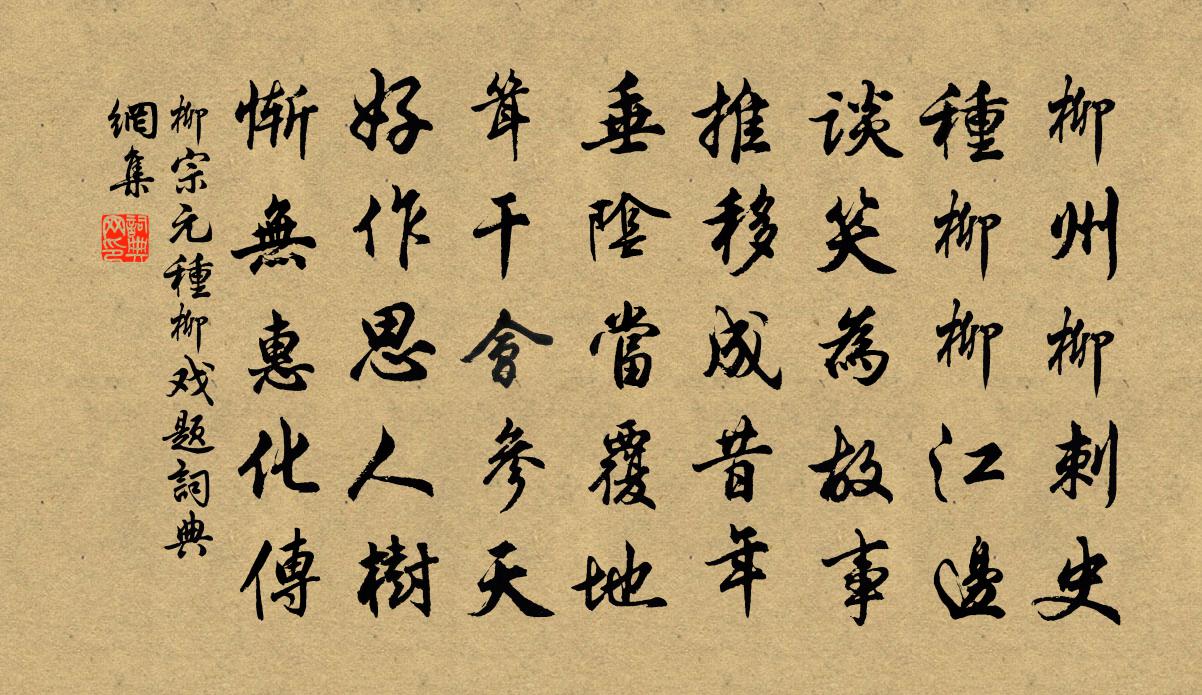 柳州柳刺史
種柳柳江邊
談笑為故事
推移成昔年
垂陰當覆地
耸干會參天
好作思人樹
慚無惠化傳
柳宗元種柳戏題詞典
網集
詞典
网印